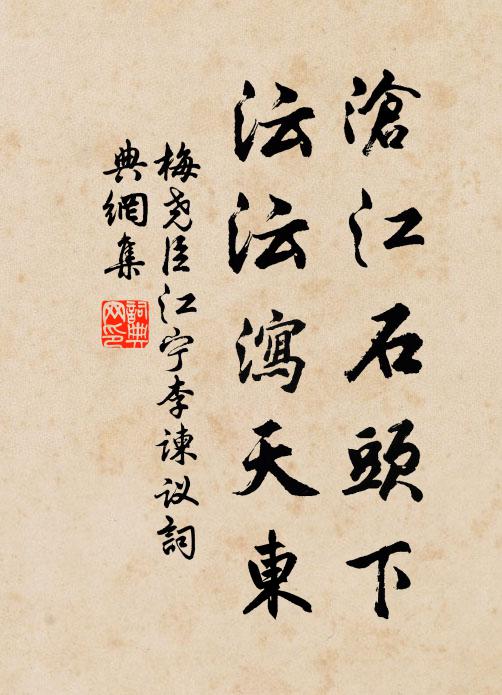 滄江石頭下
沄沄瀉天東
梅尧臣江宁李谏议詞
典網集
詞典
网印